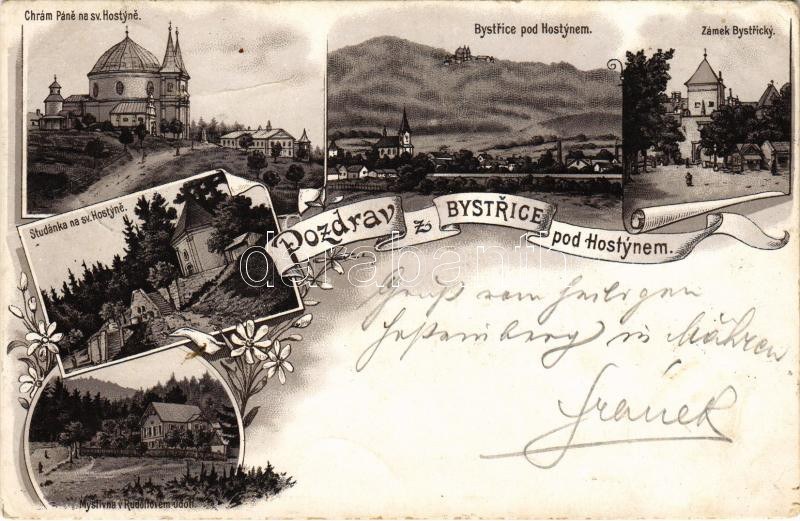 Chrám Páně na sv. Hostýně.
Bystřice pod Hostýnem.
Zámek Bystřický.
Studánka na sv. Hostýně.
Pozdrav z BYSTŘICE pod Hostýnem.
darabanth
Gruß vom heiligen
in Mähren.
Myslivna v Rudolfovém údolí.